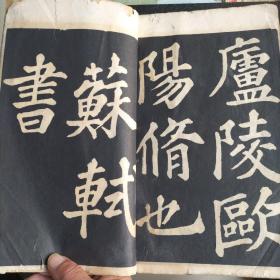 廬陵歐
陽脩也
蘇軾
書